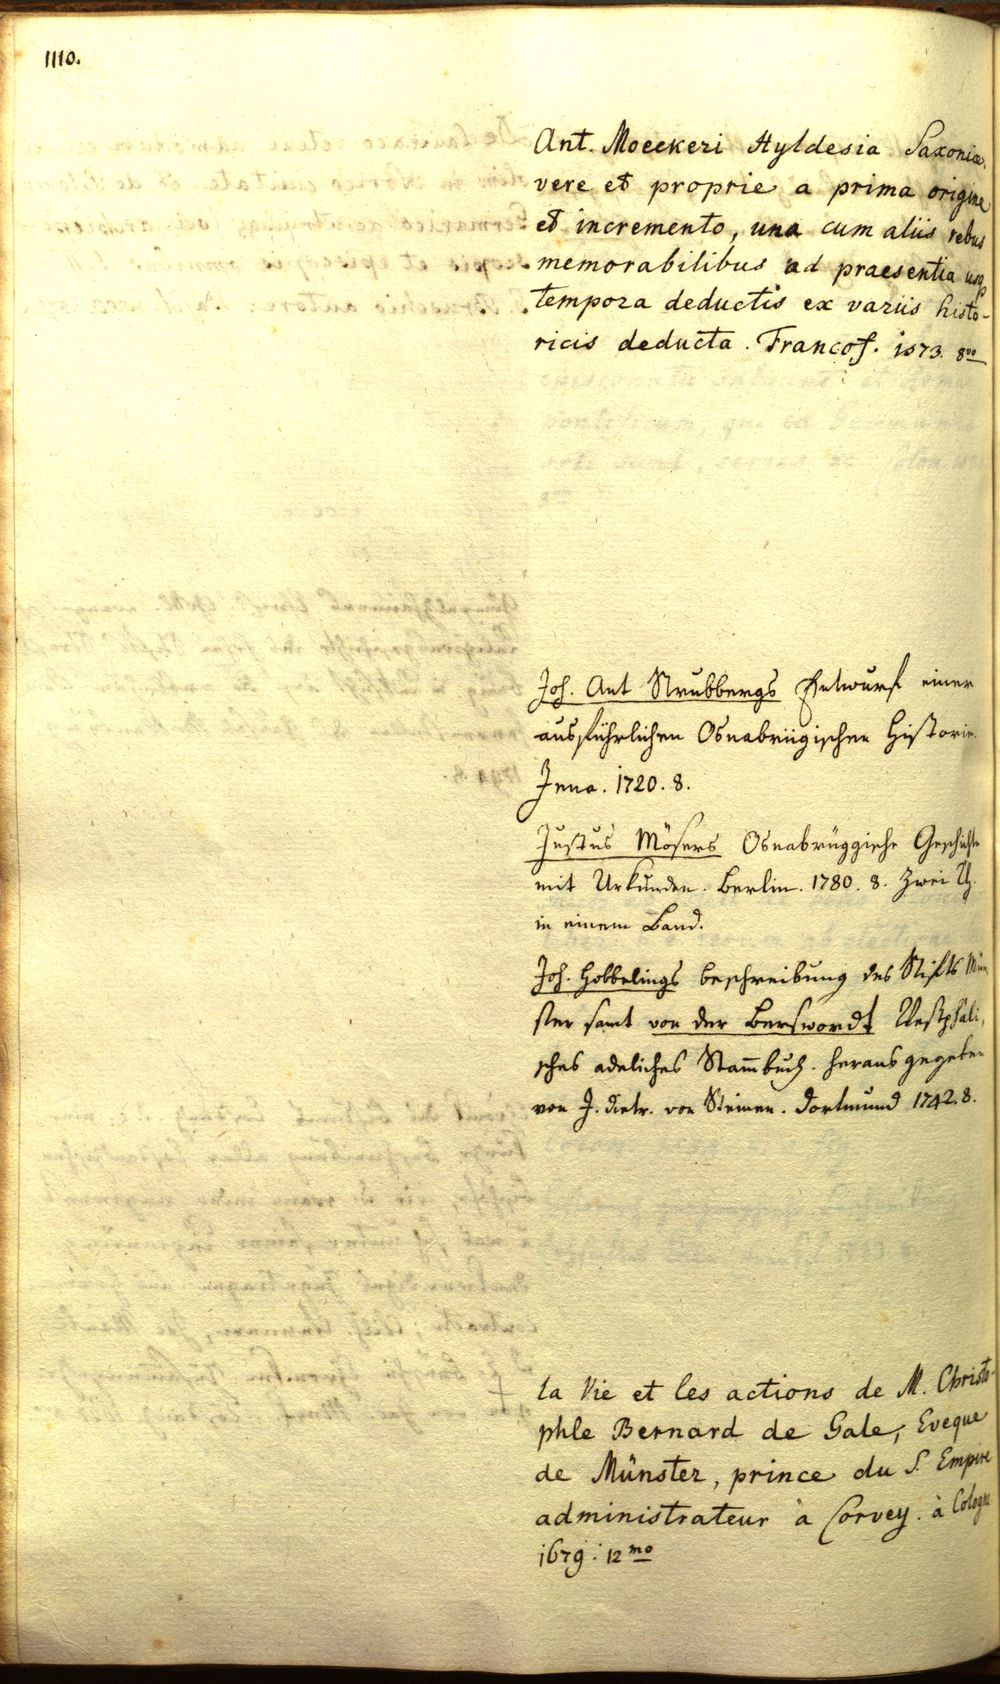 1110.
Ant. Moeckeri Hyldesia Saxoniae,
vere et proprie a prima origine
et incremento, una cum aliis rebus
memorabilibus ad praesentia usq
tempora deductis ex variis histo-
ricis deducta. Francof. 1573. 8vo
Joh. Ant Strubbergs Entwurf einer
ausführlichen Osnabrügischen Historie.
Jena. 1720. 8.
Justus Mösers Osnabrüggische Geschichte
mit Urkunden. Berlin. 1780. 8. Zwei Th.
in einem Band.
Joh. Hobbelings Beschreibung des Stifts Mün
ster samt von der Berswordt Westphäli,
sches adeliches Stam̅buch. herausgegeben
von J. Dietr. von Steinen. Dortmund 1742. 8.
La Vie et les actions de M. Christo-
phle Bernard de Gale, Eveque
de Münster, prince du S. Empire
administrateur à Corvey. à Cologne
1679. 12mo